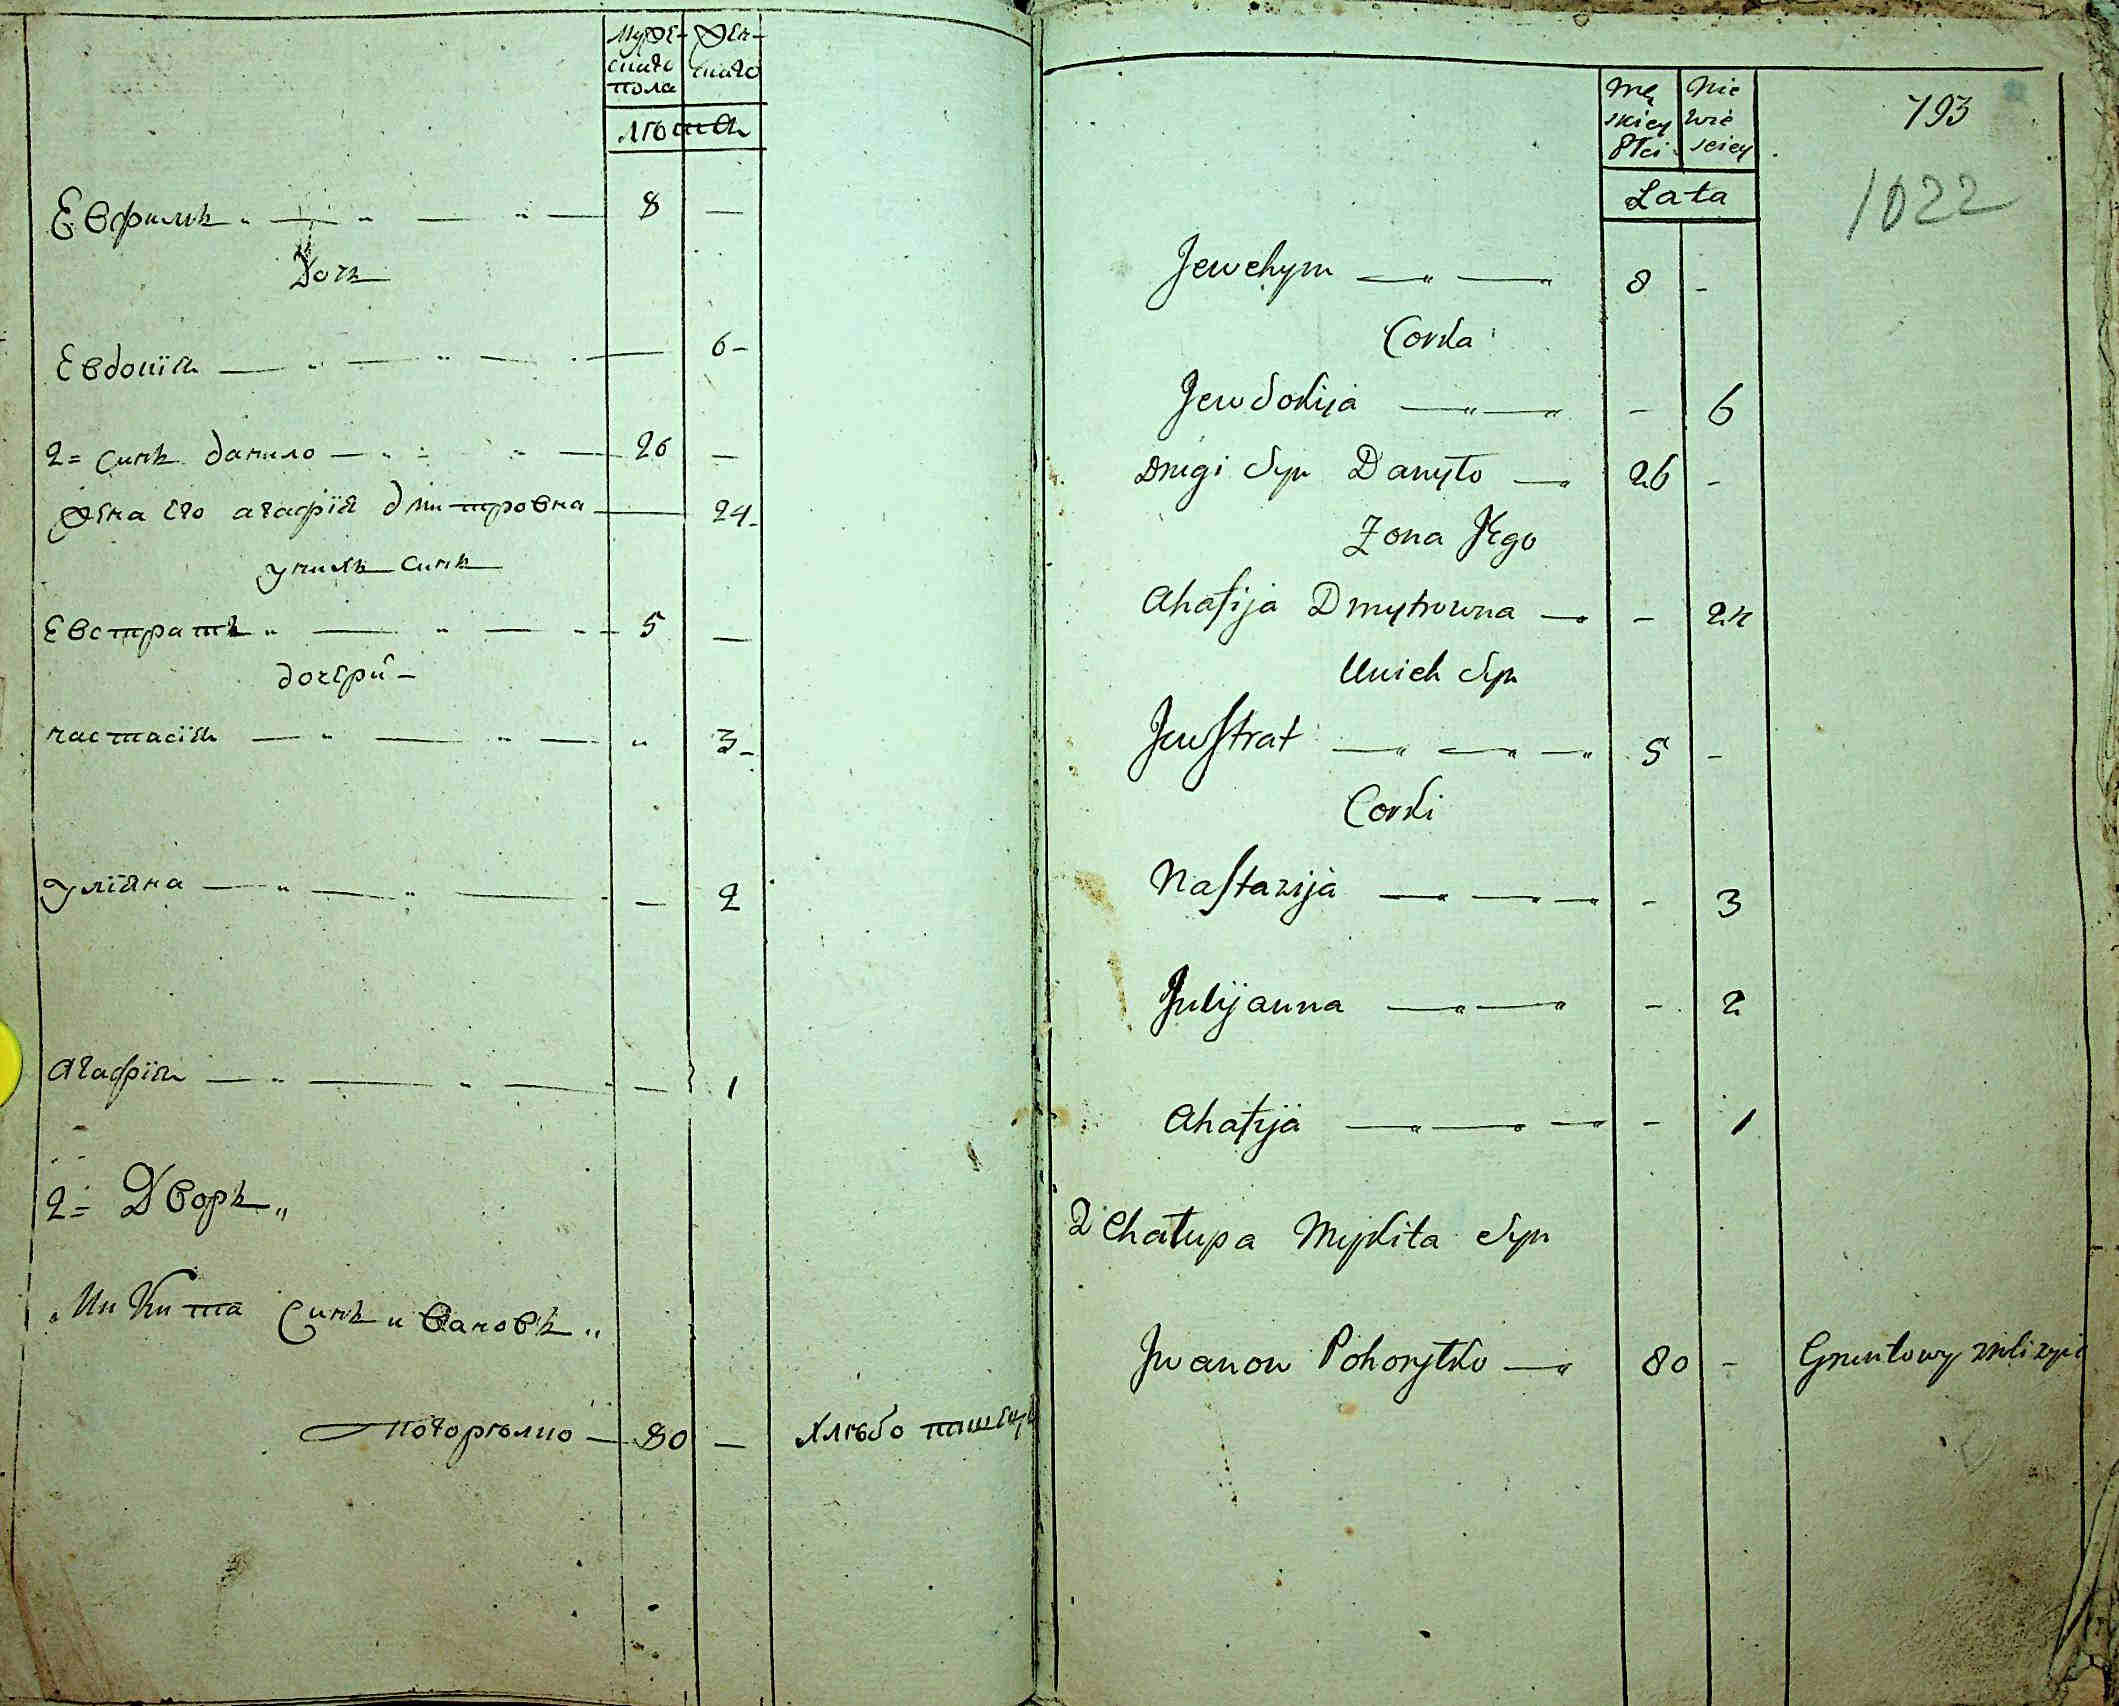 Мужескаго пола | Женскаго
Лѣта
Евфимъ 8 —
Дочь
Евдокія — 6
2= Синъ данило 26 —
Жена его агафія дмитровна — 24
у нихъ синъ
Евстратъ 5 —
дочери
настасія " 3
уліяна — 2
агафія — 1
2= Дворъ
Микита Синъ ивановъ
погорѣлко 80 — хлѣбо пашецъ
Mę skiey Płci | Nie wie sciey
Lata
793
1022
Jewchym 8 -
Corka
Jewdokija - 6
Drugi Syn Danyło 26 -
Zona Jego
Ahafija Dmytrowna - 24
Unich Syn
Jewstrat 5 -
Corki
Nastazija - 3
Julijanna - 2
Ahafija - 1
2 Chałupa Mykita Syn
Jwanow Pohoryłko 80 - Gruntowy